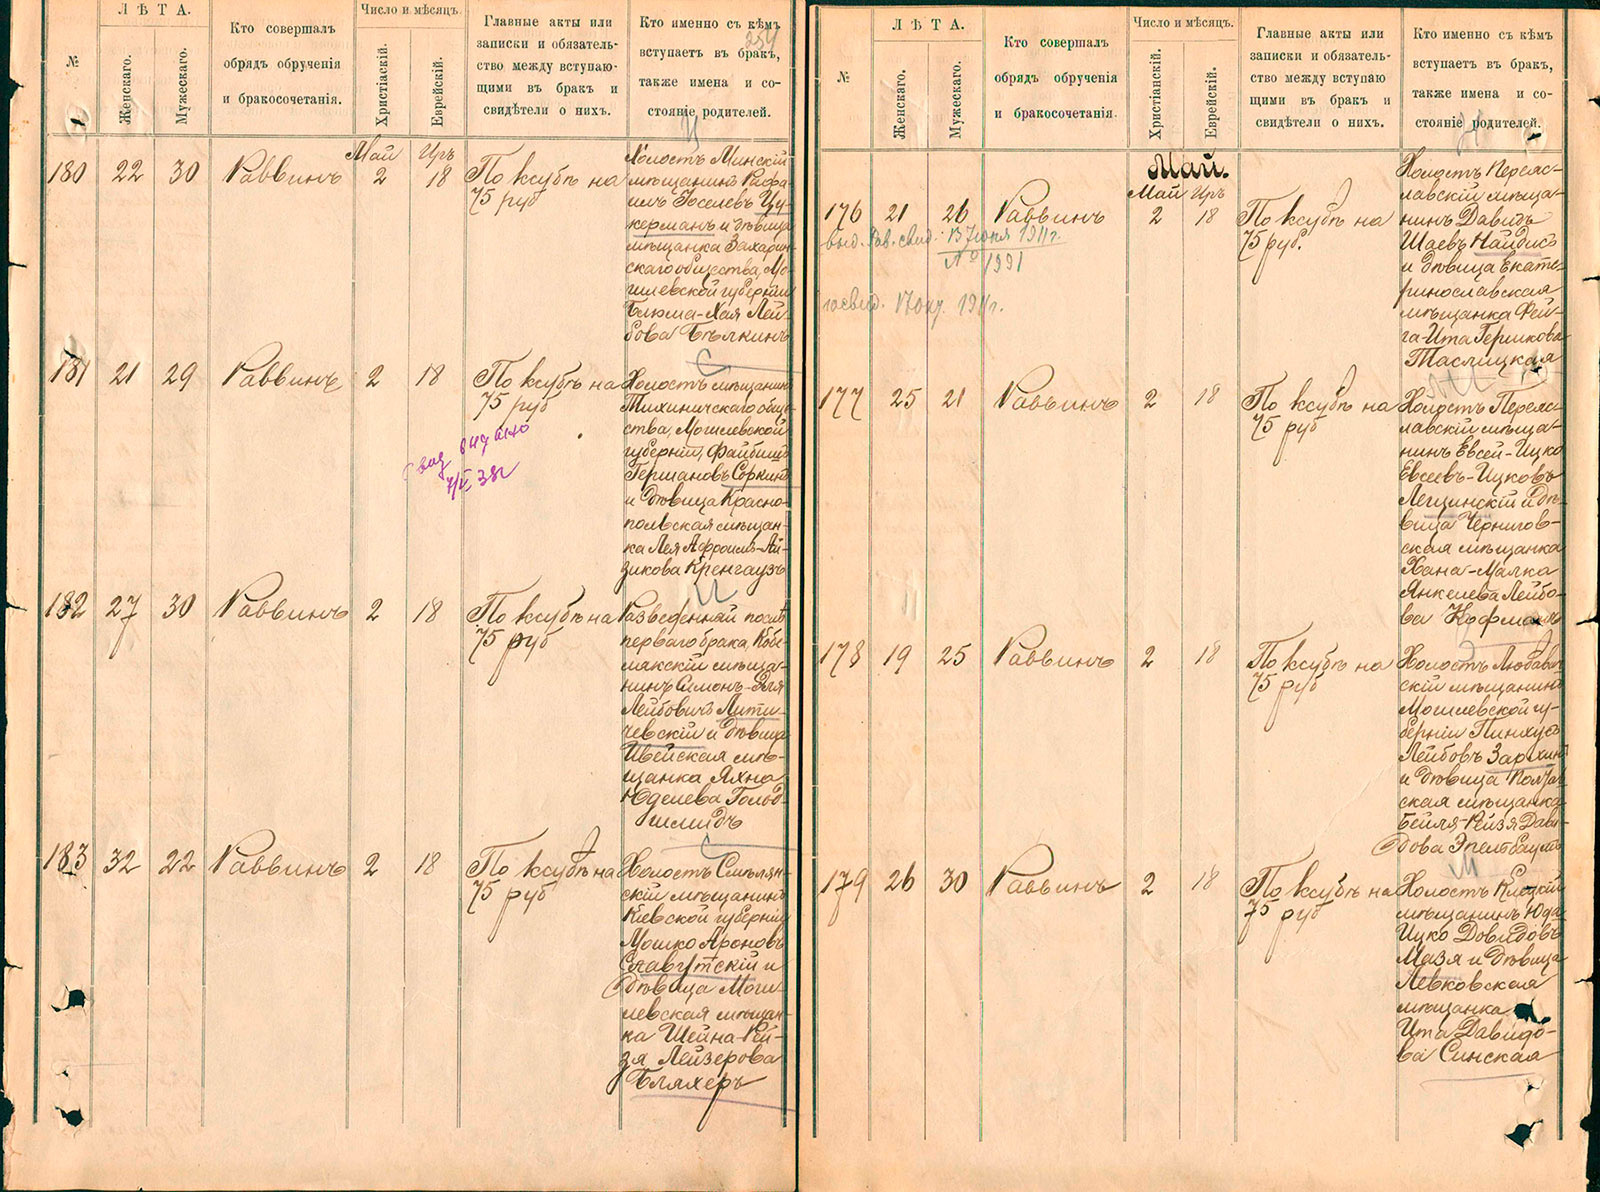 №
ЛѢТА.
Женскаго.
Мужескаго.
Кто совершалъ
обрядъ обрученія
и бракосочетанія.
Число и мѣсяцъ.
Христіаскій.
Еврейскій.
Главные акты или
записки и обязатель-
ство между вступаю-
щими въ бракъ и
свидѣтели о нихъ.
Кто именно съ кѣмъ
вступаетъ въ бракъ,
также имена и со-
стояніе родителей.
254
Май Иръ
180 22 30 Раввинъ 2 18 По ксубѣ на
75 руб
Холостъ Минскій
мѣщанинъ Рафа-
илъ Іоселевъ Цу-
керманъ и дѣвица
мѣщанка Захарин-
скаго общества, Мо-
гилевской губерніи
Блюма-Хая Лей-
бова Бѣлкинъ
181 21 29 Раввинъ 2 18 По ксубѣ на
75 руб
выдано
7/V 38г
Холостъ мѣщанинъ
Тихиничскаго обще-
ства, Могилевской
губерніи, Файбишъ
Гершановъ Соркинъ
и дѣвица Красно-
польская мѣщан-
ка Лея Афроимъ-Ай-
зикова Кренгаузъ
182 27 30 Раввинъ 2 18 По ксубѣ на
75 руб
Разведенный послѣ
перваго брака, Кобе-
лякскій мѣща-
нинъ Симонъ-Эля
Лейбовичъ Лити-
чевскій и дѣвица
Ивейская мѣ-
щанка Яхна
Юделева Гольд-
шмидъ
183 32 22 Раввинъ 2 18 По ксубѣ на
75 руб
Холостъ Смѣлян-
скій мѣщанинъ
Кіевской губерніи
Мошко Ароновъ
Славутскій и
дѣвица Моги-
левская мѣщан-
ка Шейна-Рей-
зя Лейзерова
Бляхеръ
№
ЛѢТА.
Женскаго.
Мужескаго.
Кто совершалъ
обрядъ обрученія
и бракосочетанія.
Число и мѣсяцъ.
Христіанскій.
Еврейскій.
Главные акты или
записки и обязатель-
ство между вступаю
щими въ бракъ и
свидѣтели о нихъ.
Кто именно съ кѣмъ
вступаетъ въ бракъ,
также имена и со-
стояніе родителей.
Май.
Май Иръ
176 21 26 Раввинъ 2 18 По ксубѣ на
75 руб.
выд. Рав. свид. 13 Іюня 1911г.
№ 1991
17 окт. 1911г.
Холостъ Переяс-
лавскій мѣща-
нинъ Давидъ
Шаевъ Найдисъ
и дѣвица Екате-
ринославская
мѣщанка Фей-
га-Ита Гершкова
Таслицкая
177 25 21 Раввинъ 2 18 По ксубѣ на
75 руб
Холостъ Переяс-
лавскій мѣща-
нинъ Евсей-Ицко
Евсеевъ-Ицковъ
Лещинскій и дѣ-
вица Чернигов-
ская мѣщанка
Хана-Малка
Янкелева Лейбо-
ва Кофманъ
178 19 25 Раввинъ 2 18 По ксубѣ на
75 руб
Холостъ Любавич-
скій мѣщанинъ
Могилевской гу-
берніи Пинхусъ
Лейбовъ Зархинъ
и дѣвица Полтав-
ская мѣщанка
Бейля-Рейзя Дави-
дова Эпельбаумъ
179 26 30 Раввинъ 2 18 По ксубѣ на
75 руб
Холостъ Клецкій
мѣщанинъ Юда-
Ицко Довидовъ
Мазя и дѣвица
Левковская
мѣщанка
Ита Давидо-
ва Синская